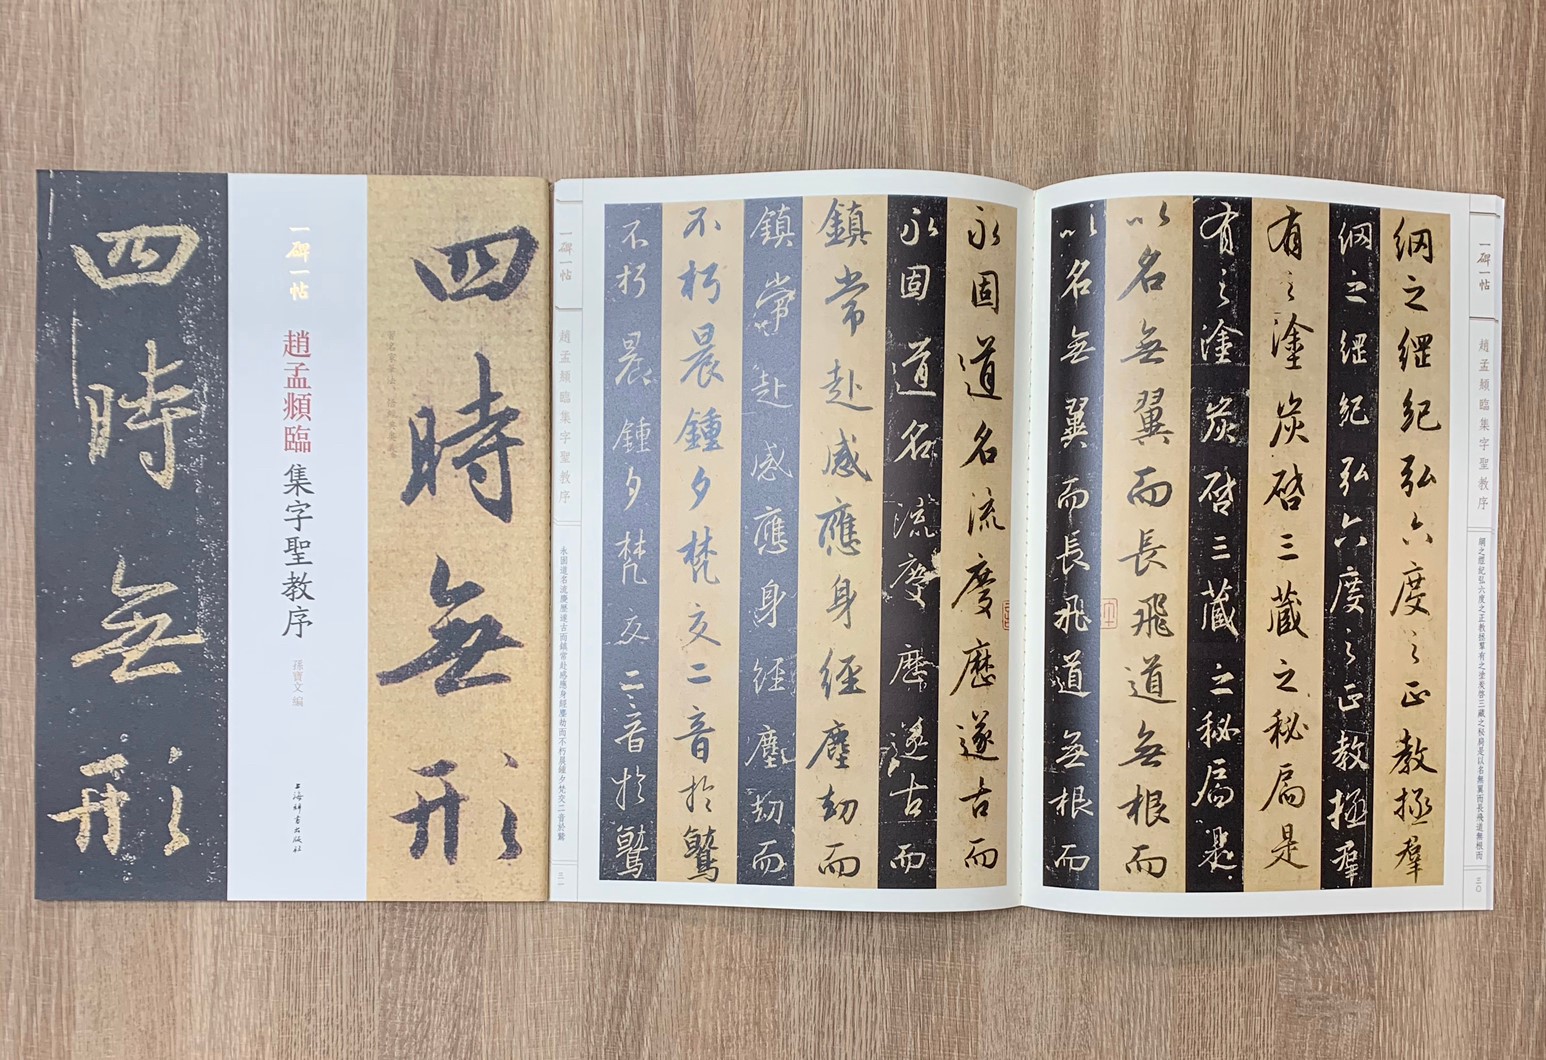 四時無形
一碑一帖
趙孟頫臨
集字聖教序
孫寶文 編
上海辭書出版社
四時無形
一碑一帖
趙孟頫臨集字聖教序
網之綱紀弘六度之正教拯羣有之塗炭啓三藏之秘扃是以名無翼而長飛道無根而
三〇
網之綱紀弘六度之正教拯羣
網之綱紀弘六度之正教拯羣
有之塗炭啓三藏之秘扃是
有之塗炭啓三藏之秘扃是
以名無翼而長飛道無根而
以名無翼而長飛道無根而
永固道名流慶歷遂古而
永固道名流慶歷遂古而
鎮常赴感應身經塵劫而
鎮常赴感應身經塵劫而
不朽晨鍾夕梵交二音於鷲
不朽晨鍾夕梵交二音於鷲
一碑一帖
趙孟頫臨集字聖教序
永固道名流慶歷遂古而鎮常赴感應身經塵劫而不朽晨鍾夕梵交二音於鷲
三一